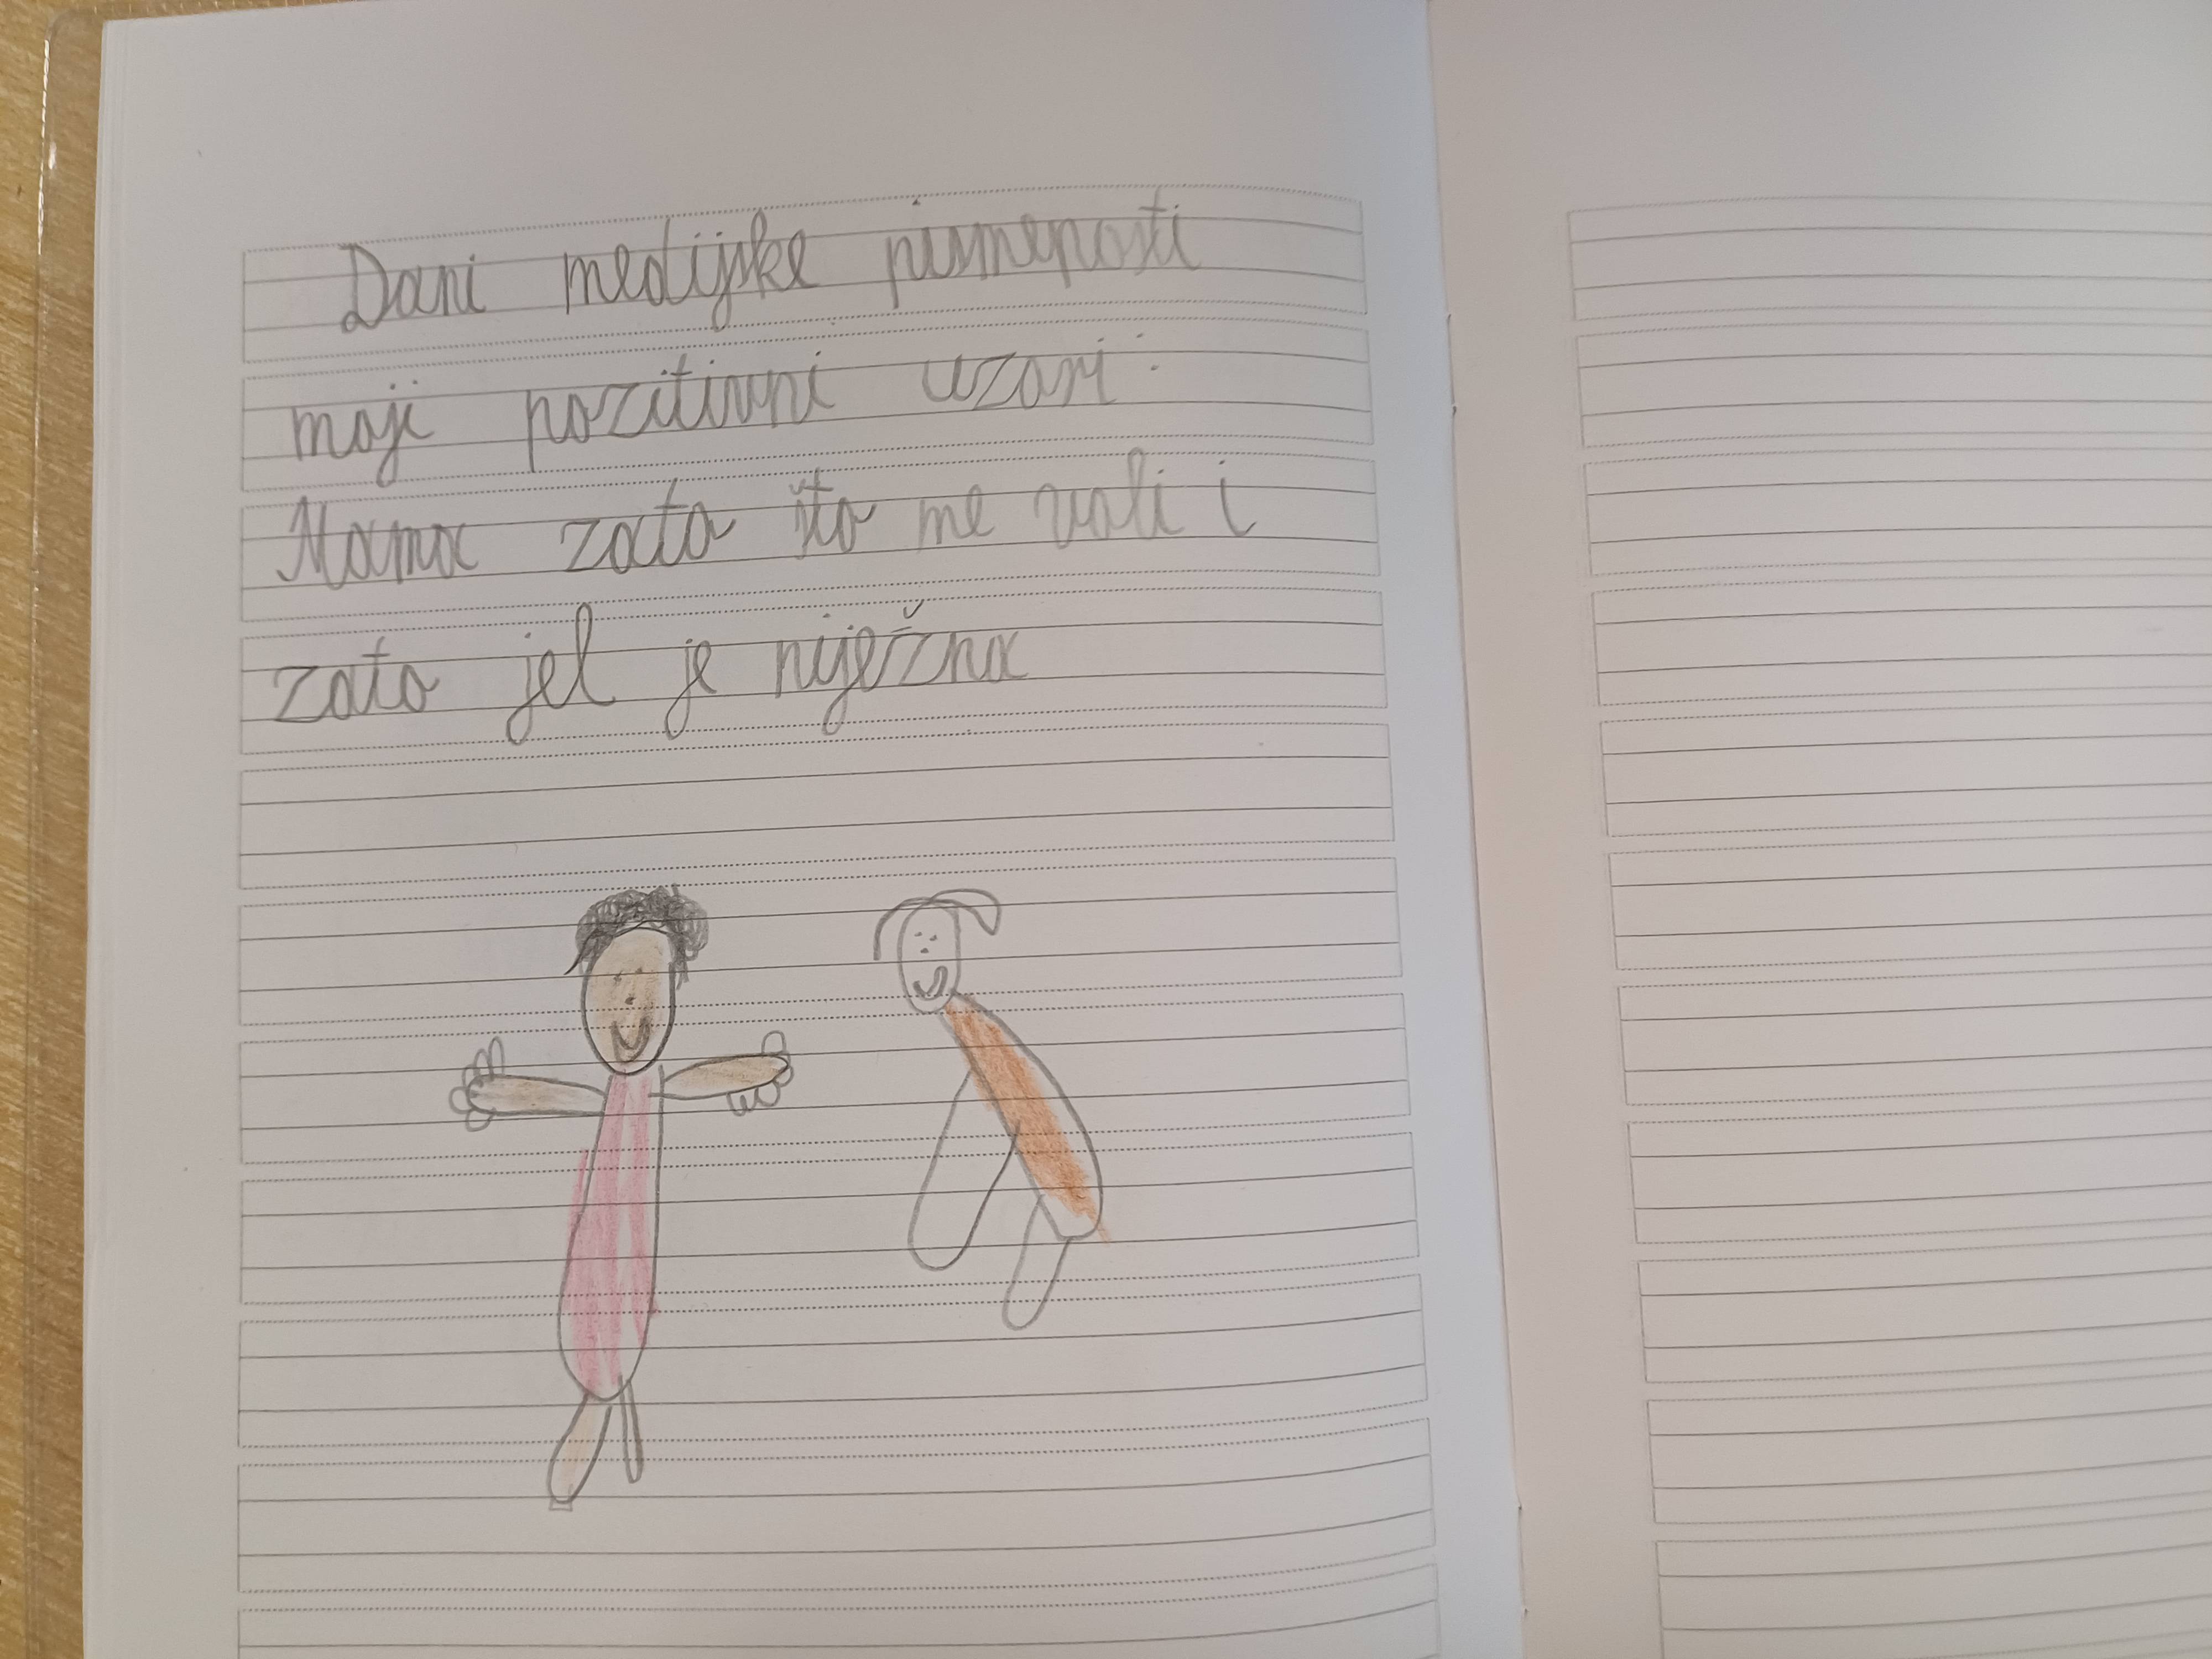 Dani medijske pismenosti
moji pozitivni uzori:
Mama zato što me voli i
zato jel je niježna